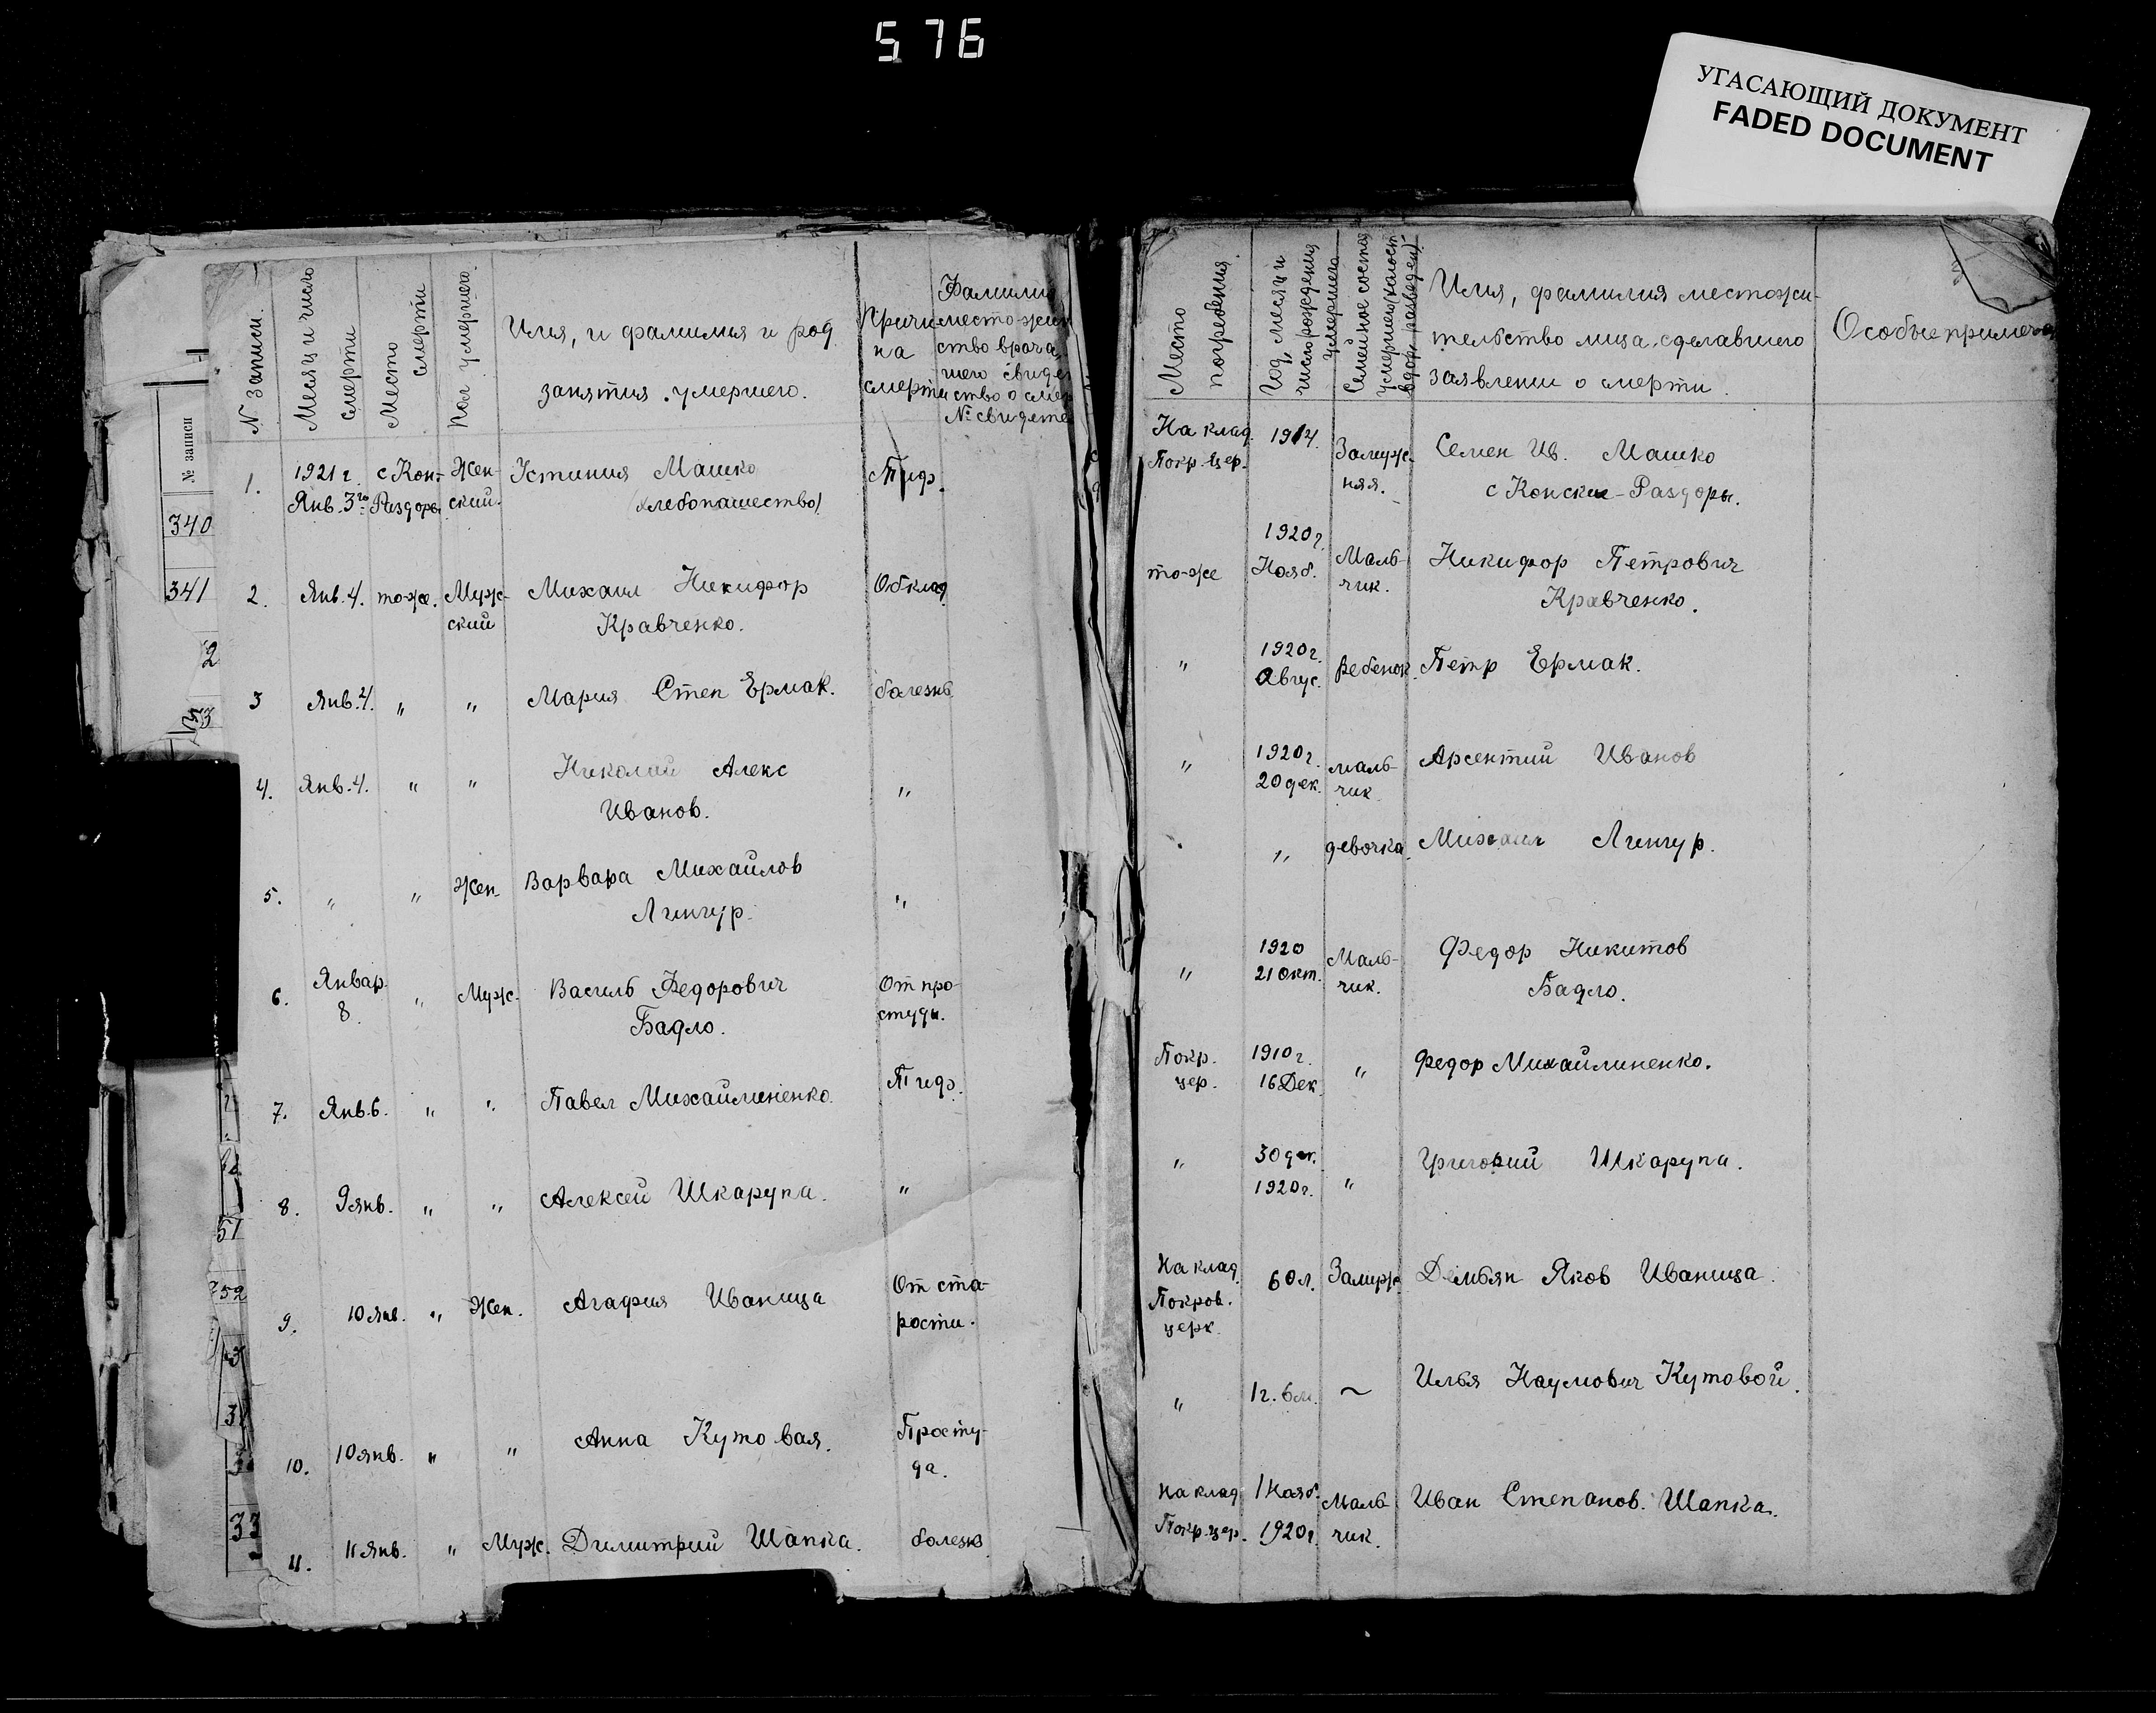 576
УГАСАЮЩИЙ ДОКУМЕНТ
FADED DOCUMENT
№ записи
340
341
2
33
51
52
31
33
N записи.
Месяц и число смерти
Место смерти
Пол умершего.
Имя, и фамилия и род
занятия умершего.
Причи
на
смерти
Фамилия
место-жит
ство врача
шего свиде
ство о смер
№ свидете
1.
1921 г.
Янв. 3го
с Кон-
Раздоры
Жен-
ский.
Устиния Машко
(хлебопашество)
Тиф.
2.
Янв. 4.
то-же.
Муж-
ский
Михаил Никифор
Кравченко.
Обклад
3
Янв. 4.
"
"
Мария Степ Ермак.
болезнь
4.
Янв. 4.
"
"
Николай Алекс
Иванов.
"
5.
"
"
Жен.
Варвара Михайлов
Лингур.
"
6.
Январ.
8.
"
Муж.
Василь Федорович
Бадло.
От про-
студы.
7.
Янв. 6.
"
"
Павел Михайлиненко.
Тиф.
8.
9 янв.
"
"
Алексей Шкарупа.
"
9.
10 янв.
"
Жен.
Агафия Иваница
От ста-
рости.
10.
10 янв.
"
"
Анна Кутовая.
Просту-
да.
11.
11 янв.
"
Муж.
Димитрий Шапка.
болезнь
Место
погребения.
Год, месяц и
число рождения
умершего
Семейное состоя
умершег/холост
вдов, разведен)
Имя, фамилия местожи-
тельство лица, сделавшего
заявлении о смерти.
Особые примеча
На клад.
Покр. цер.
1914.
Замуж-
няя.
Семен Ив. Машко
с Конские-Раздоры.
то-же
1920 г.
Нояб.
Маль-
чик.
Никифор Петрович
Кравченко.
"
1920 г.
Авгус.
Ребенок.
Петр Ермак.
"
1920 г.
20 дек.
маль-
чик.
Арсентий Иванов
"
девочка.
Михаил Лингур.
"
1920
21 окт.
Маль-
чик.
Федор Никитов
Бадло.
Покр.
цер.
1910 г.
16 Дек
"
Федор Михайлиненко.
"
30 дек.
1920 г.
"
Григорий Шкарупа.
На клад.
Покров.
церк.
60 л.
Замуж
Демьян Яков Иваница.
"
1 г. 6 м.
~
Илья Наумович Кутовой.
На клад
Покр. цер.
1 Нояб.
1920 г.
Маль-
чик.
Иван Степанов. Шапка.